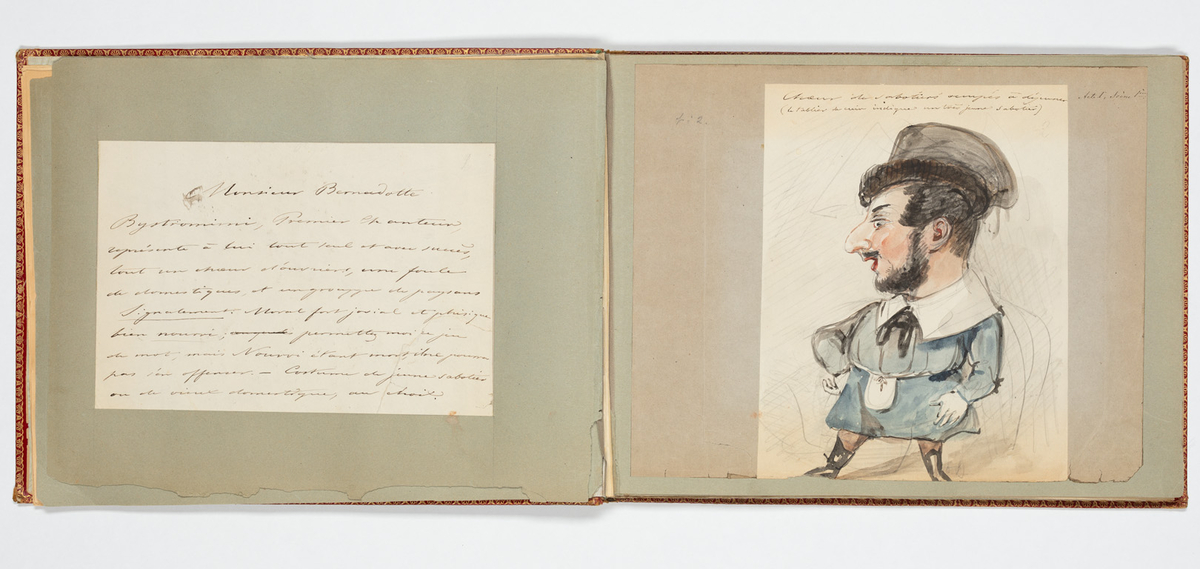 Monsieur Bernadotte
Bystromimi, Premier Chanteur
représente à lui tout seul et avec succès,
tout un chœur d'ouvriers, une foule
de domestiques, et un grouppe de paysans
Signalement. Moral fort jovial et phisique
bien nourri; permettez moi ce jeu
de mot, mais Nourri étant mort il ne pourra
pas s'en offenser. — Costume de jeune sabotier
ou de vieux domestique, au choix.
Chœur de sabotiers occupés à déjeuner
(le tablier de cuir indique un jeune sabotier)
Act 1, Scène 1